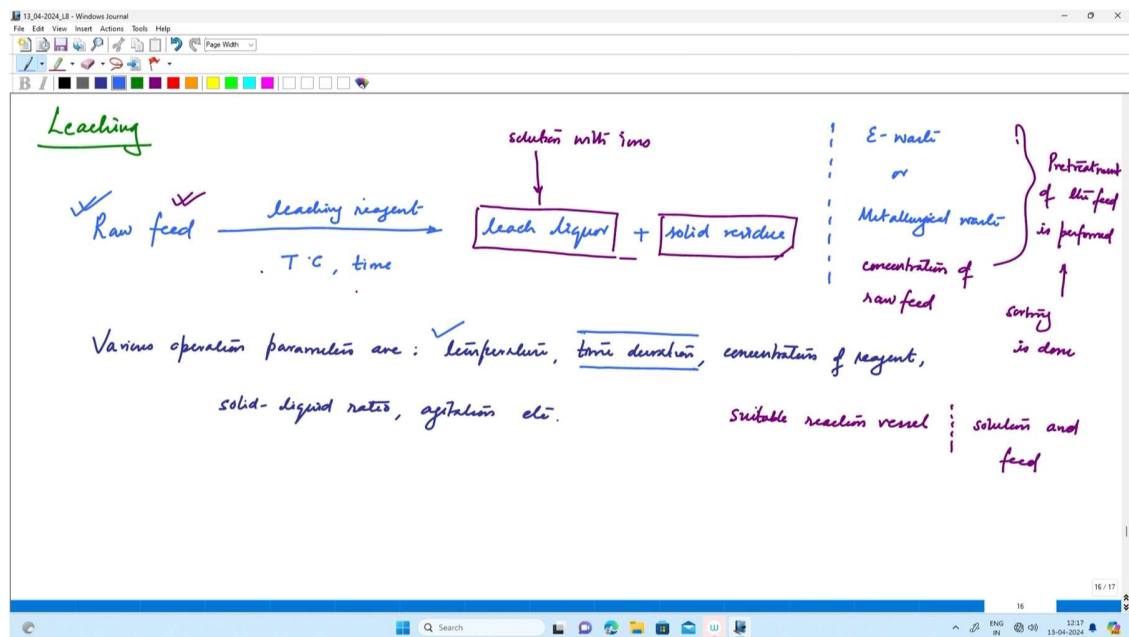 13_04-2024_L8 - Windows Journal
File Edit View Insert Actions Tools Help
Page Width
B I
Leaching
solution with ions
Raw feed
leaching reagent
T °C, time
leach liquor + solid residue
E-waste
or
Metallurgical waste
concentration of
raw feed
Pretreatment
of the feed
is performed
sorting
is done
Various operation parameters are : temperature, time duration, concentration of reagent,
solid-liquid ratio, agitation etc.
suitable reaction vessel
solution and
feed
16 / 17
16
Search
ENG
IN
12:17
13-04-2024